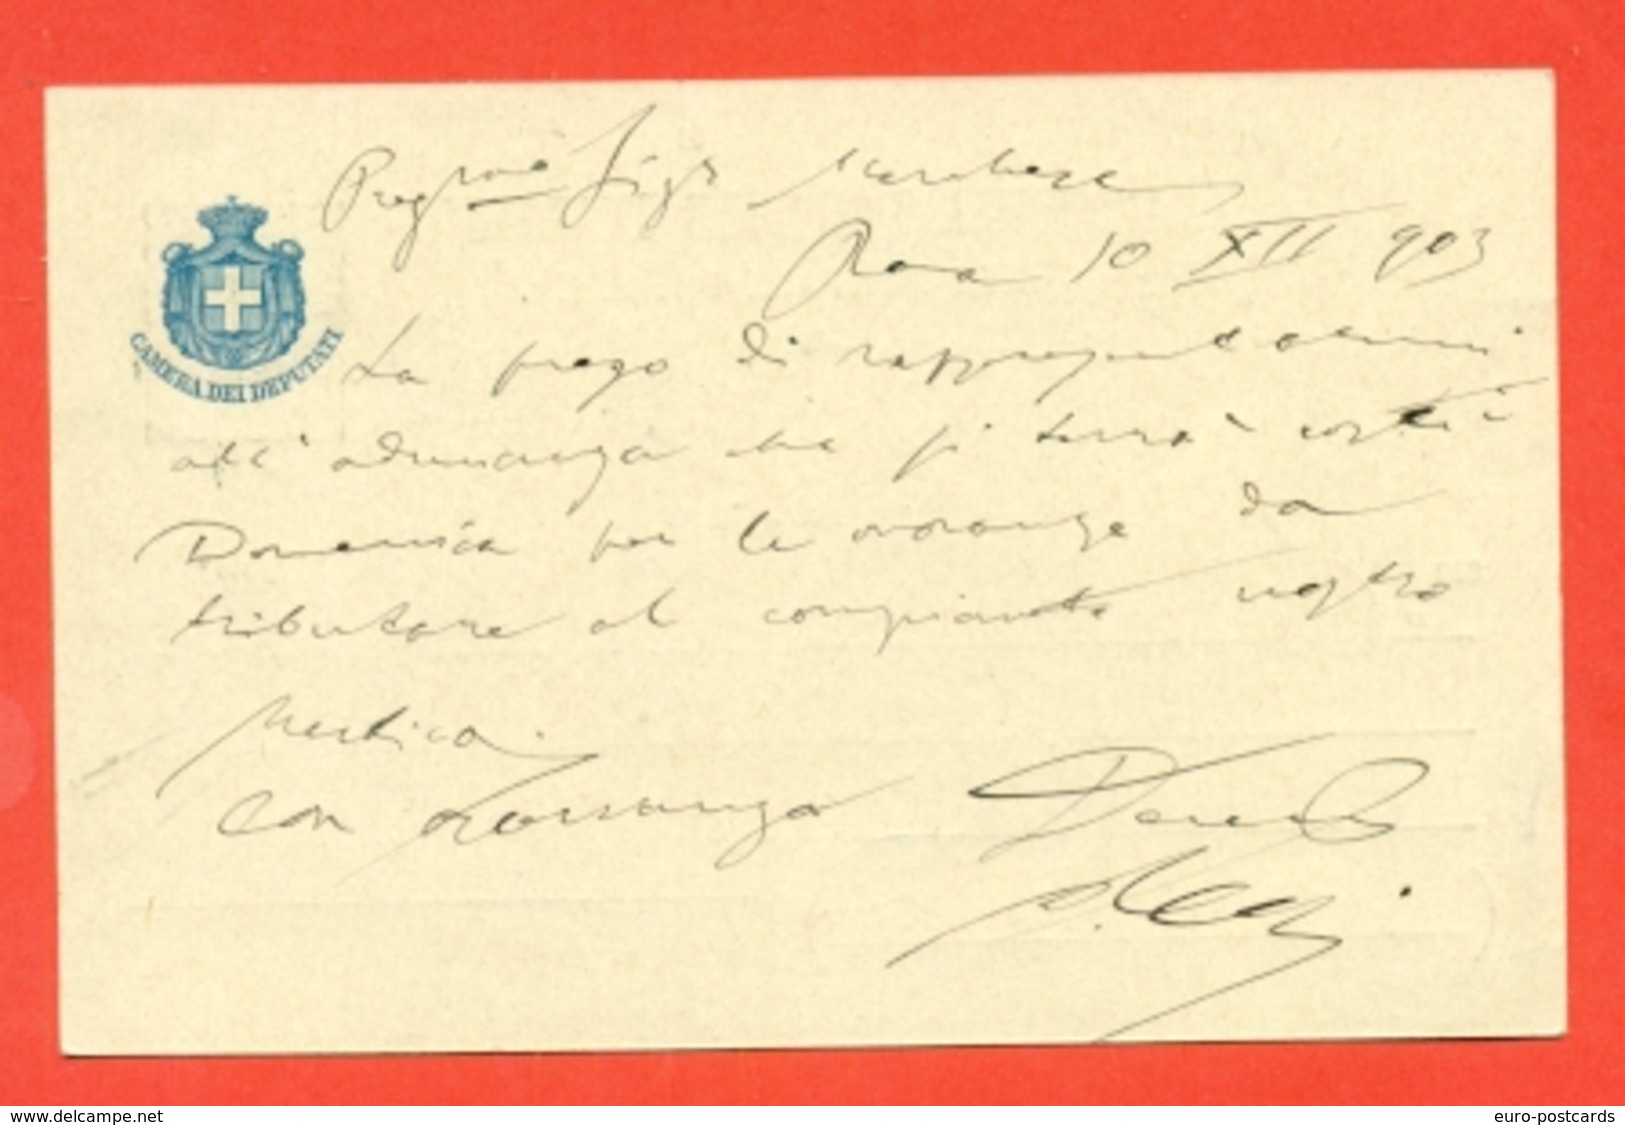 Preg.mo Sigr Marchese
Roma 10 XII 903
CAMERA DEI DEPUTATI
La prego di rappresentarmi
all'adunanza che si terrà costì
Domenica per le onoranze da
tributare al compianto nostro
Mestica.
con osservanza
www.delcampe.net
euro-postcards